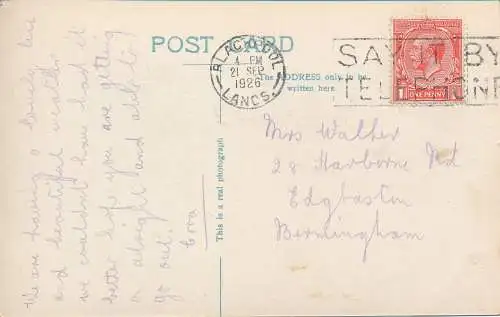 POST CARD
BLACKPOOL
4 PM
21 SEP
1926
LANCS.
SAY IT BY
TELEPHONE
ONE PENNY
The ADDRESS only to be
written here.
This is a real photograph
Mrs Walker
28 Harborne Rd
Edgbaston
Birmingham
We are having a lovely time
and beautiful weather
we couldn't have had it
better hope you are getting
on alright and able to
go out.
Cora